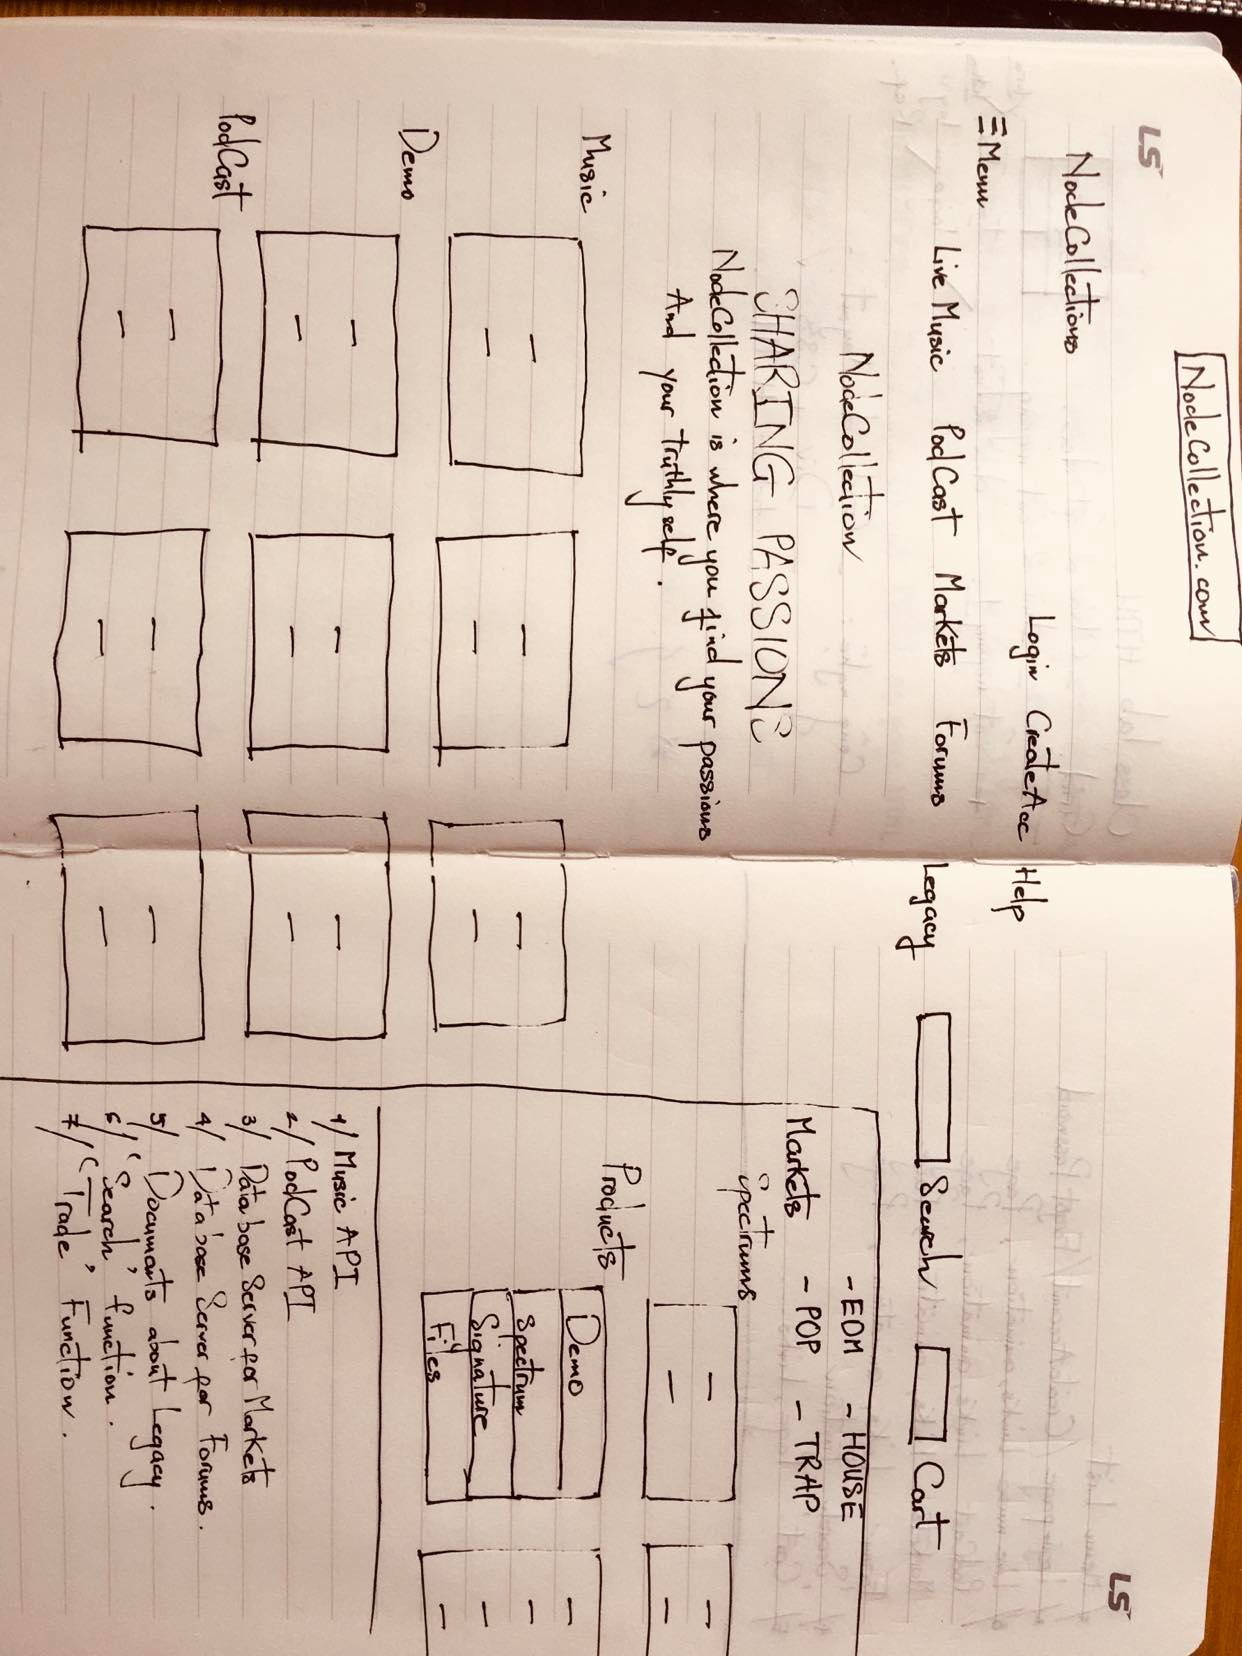 NodeCollection.com
LS
LS
NodeCollections
Login CreateAcc Help
Menu
Live Music PodCast Markets Forums Legacy Search Cart
NodeCollection
SHARING PASSIONS
NodeCollection is where you find your passions
And your truthly self.
Music
Demo
PodCast
- EDM - HOUSE
Markets - POP - TRAP
Spectrums
Products
Demo
Spectrum
Signature
Files
1/ Music API
2/ PodCast API
3/ Database Server for Markets
4/ Database Server for Forums.
5/ Documents about Legacy.
6/ 'Search' function.
7/ 'Trade' Function.